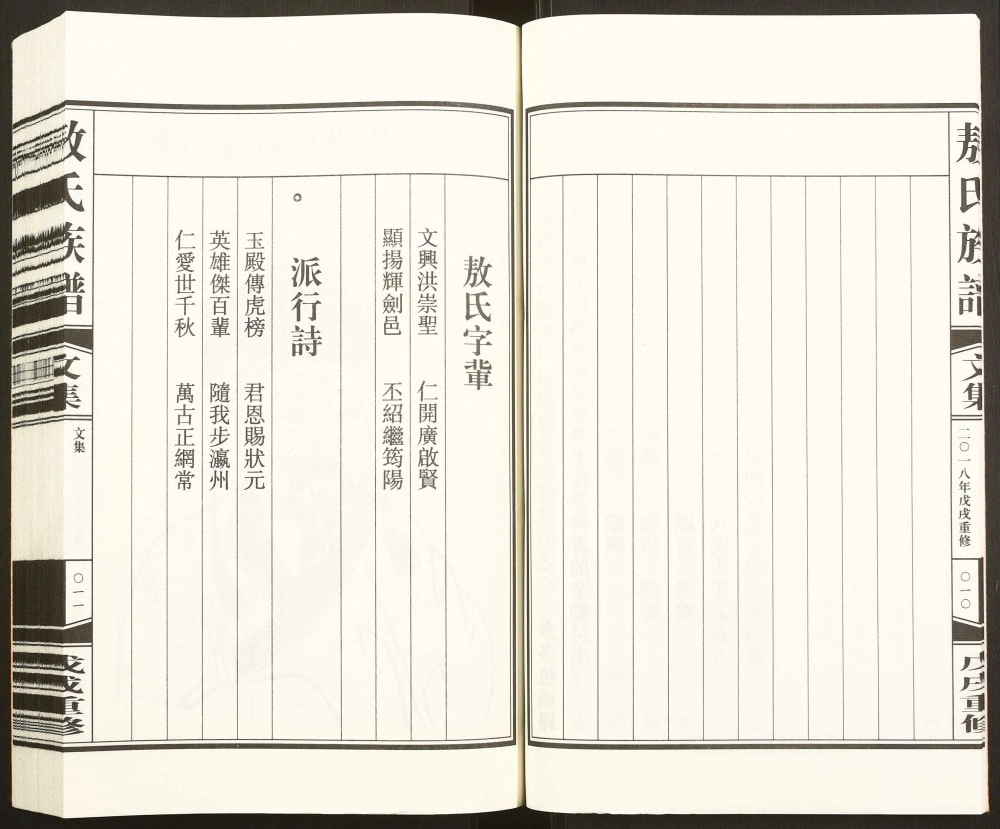 敖氏族譜
文集
二〇一八年戊戌重修
〇一〇
戊戌重修
敖氏字輩
文興洪崇聖 仁開廣啟賢
顯揚輝劍邑 丕紹繼筠陽
派行詩
玉殿傳虎榜 君恩賜狀元
英雄傑百輩 隨我步瀛州
仁愛世千秋 萬古正網常
敖氏族譜
文集
文集
〇一一
戊戌重修